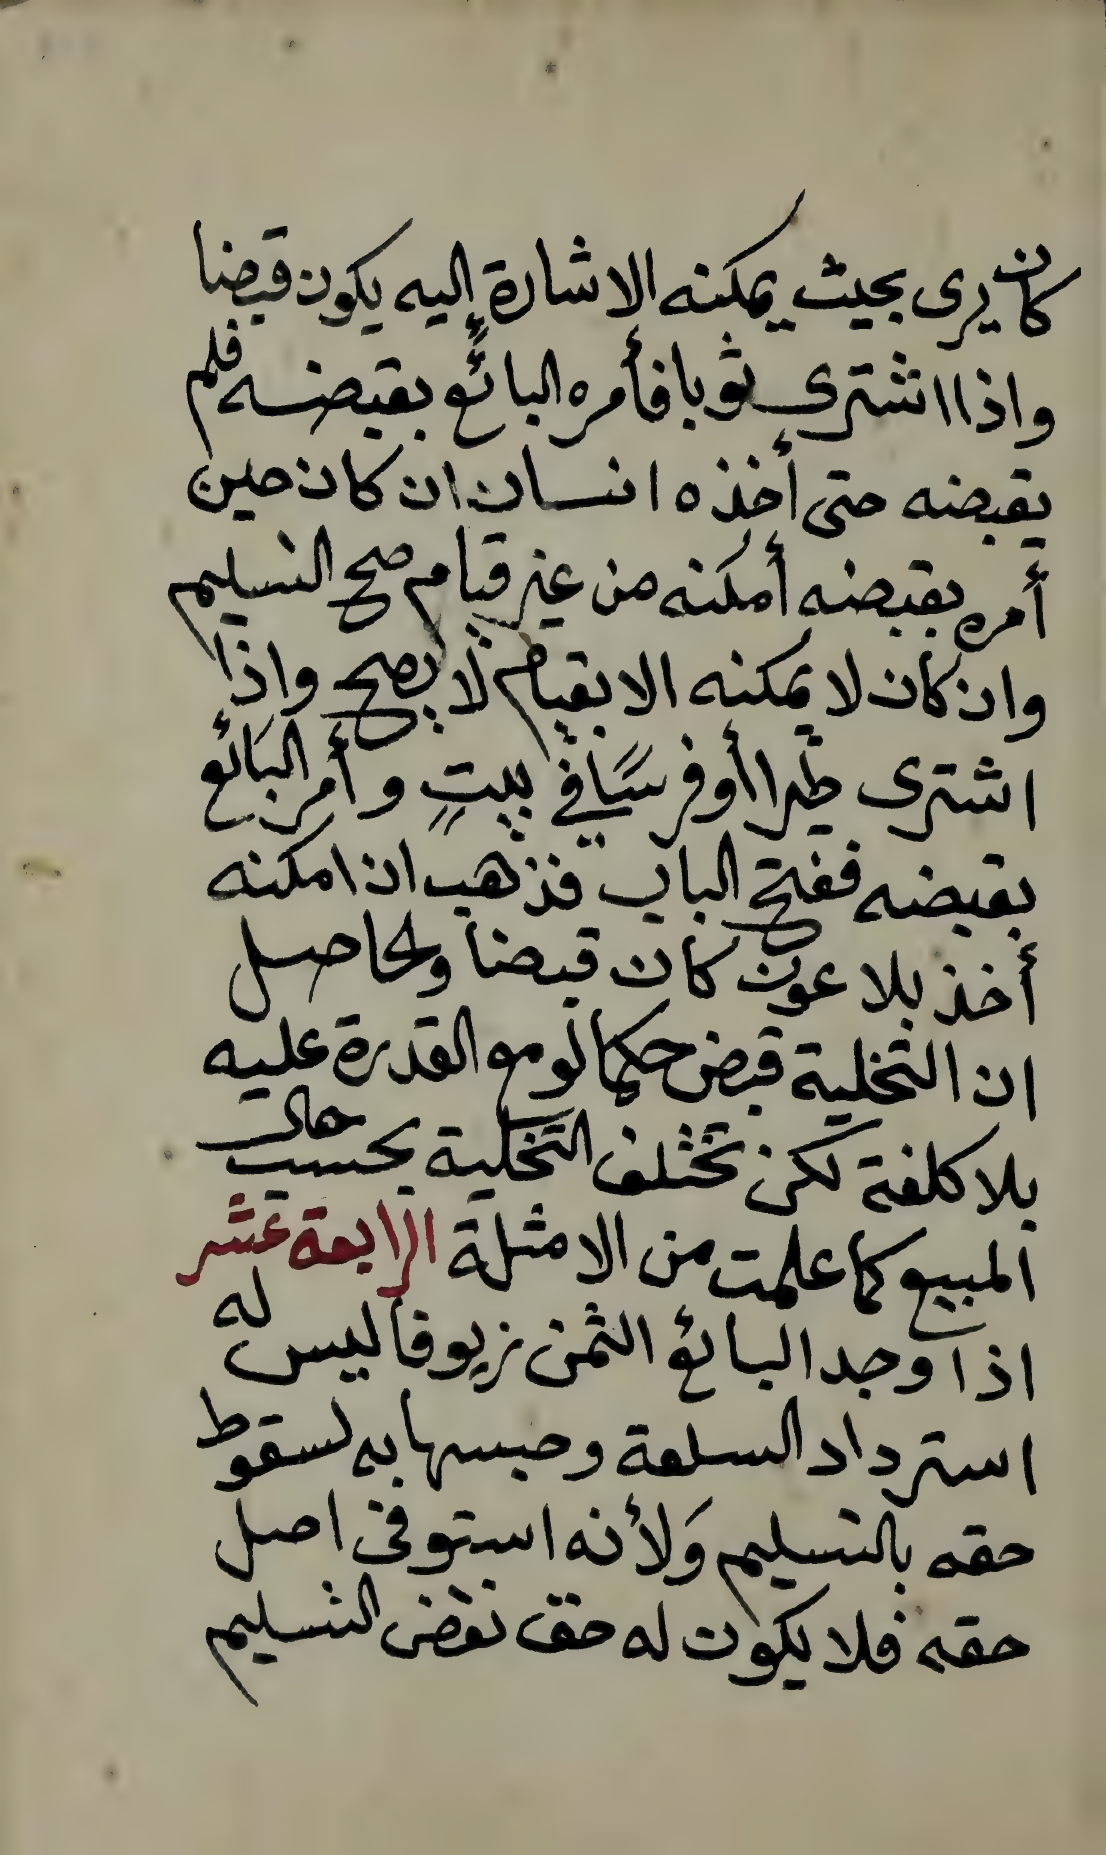 كان يرى بحيث يمكنه الاشارة إليه يكون قبضا
واذا اشترى ثوبا فأمره البائع بقبضه فلم
يقبضه حتى أخذه انسان ان كان حين
أمره بقبضه أمكنه من غير قيام صح التسليم
وان كان لا يمكنه الا بقيام لا يصح واذا
اشترى طيرا أو فرسًا في بيتٍ وأمر البَائع
بقبضه ففتح الباب فذهب ان امكنه
أخذ بلا عون كان قبضا والحاصل
ان التخلية قبض حكما لو مع القدرة عليه
بلا كلفة لكن تختلف التخلية بحسب حال
المبيع كما علمت من الامثلة الرابعة عشر
اذا وجد البائع الثمن زيوفا ليس له
استرداد السلعة وحبسها به لسقوط
حقه بالتسليم وَلأنه استوفى اصل
حقه فلا يكون له حق نقض التسليم